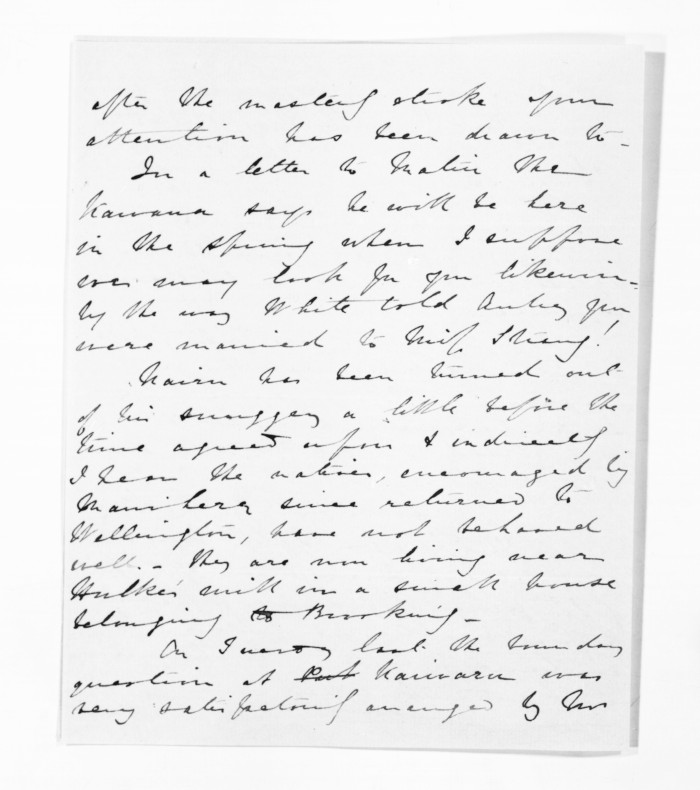 after the masterly stroke your
attention has been drawn to -
In a letter to Matiu the
Kawana says he will be here
in the spring when I suppose
we may look for you likewise -
by the way White told Aubrey you
were married to Miss Strang!
Nairn has been turned out
of his snuggery a little before the
time agreed upon & indirectly
I hear the natives, encouraged by
since returned to
Wellington, have not behaved
well. - They are now living near
Hulke's mill in a small house
belonging to Brooking -
On Tuesday last the boundary
question at Kaiwaru was
very satisfactorily arranged by Mr